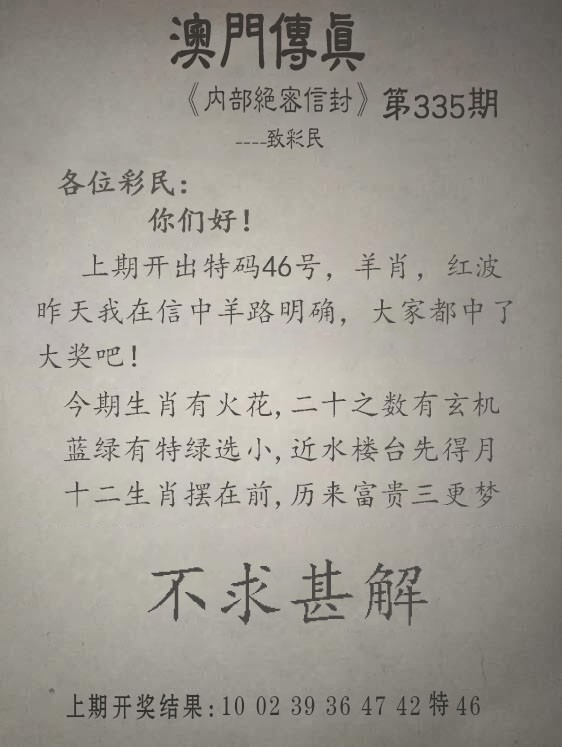 澳門傳真
《内部絕密信封》第335期
----致彩民
各位彩民：
你们好！
上期开出特码46号，羊肖，红波
昨天我在信中羊路明确，大家都中了
大奖吧！
今期生肖有火花,二十之数有玄机
蓝绿有特绿选小,近水楼台先得月
十二生肖摆在前,历来富贵三更梦
不求甚解
上期开奖结果:10 02 39 36 47 42 特 46